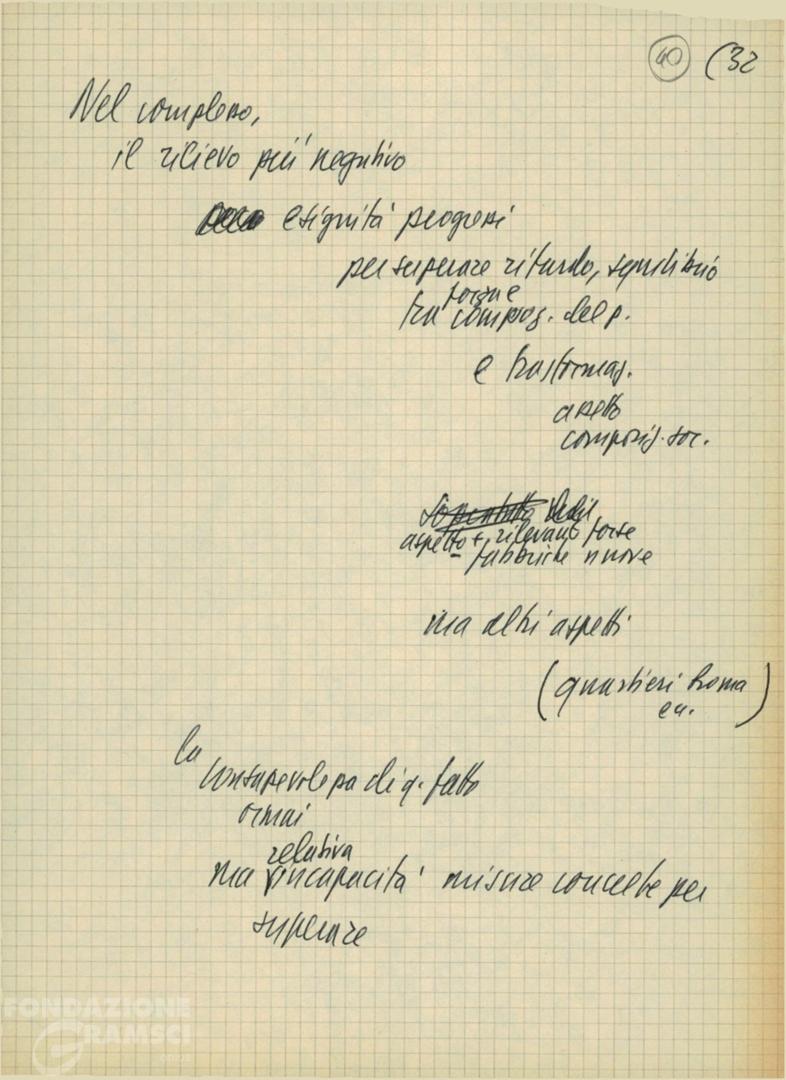 40 (32
Nel complesso,
il rilievo più negativo
esiguità progressi
per superare ritardo, squilibrio
forze e
tra compos. del p.
e trasformaz.
assetto
composiz. soc.
aspetto + rilevante forse
fabbriche nuove
ma altri aspetti
(quartieri Roma
ecc.)
la
consapevolezza di q. fatto
ormai
relativa
ma incapacità misure concrete per
superare
FONDAZIONE
GRAMSCI